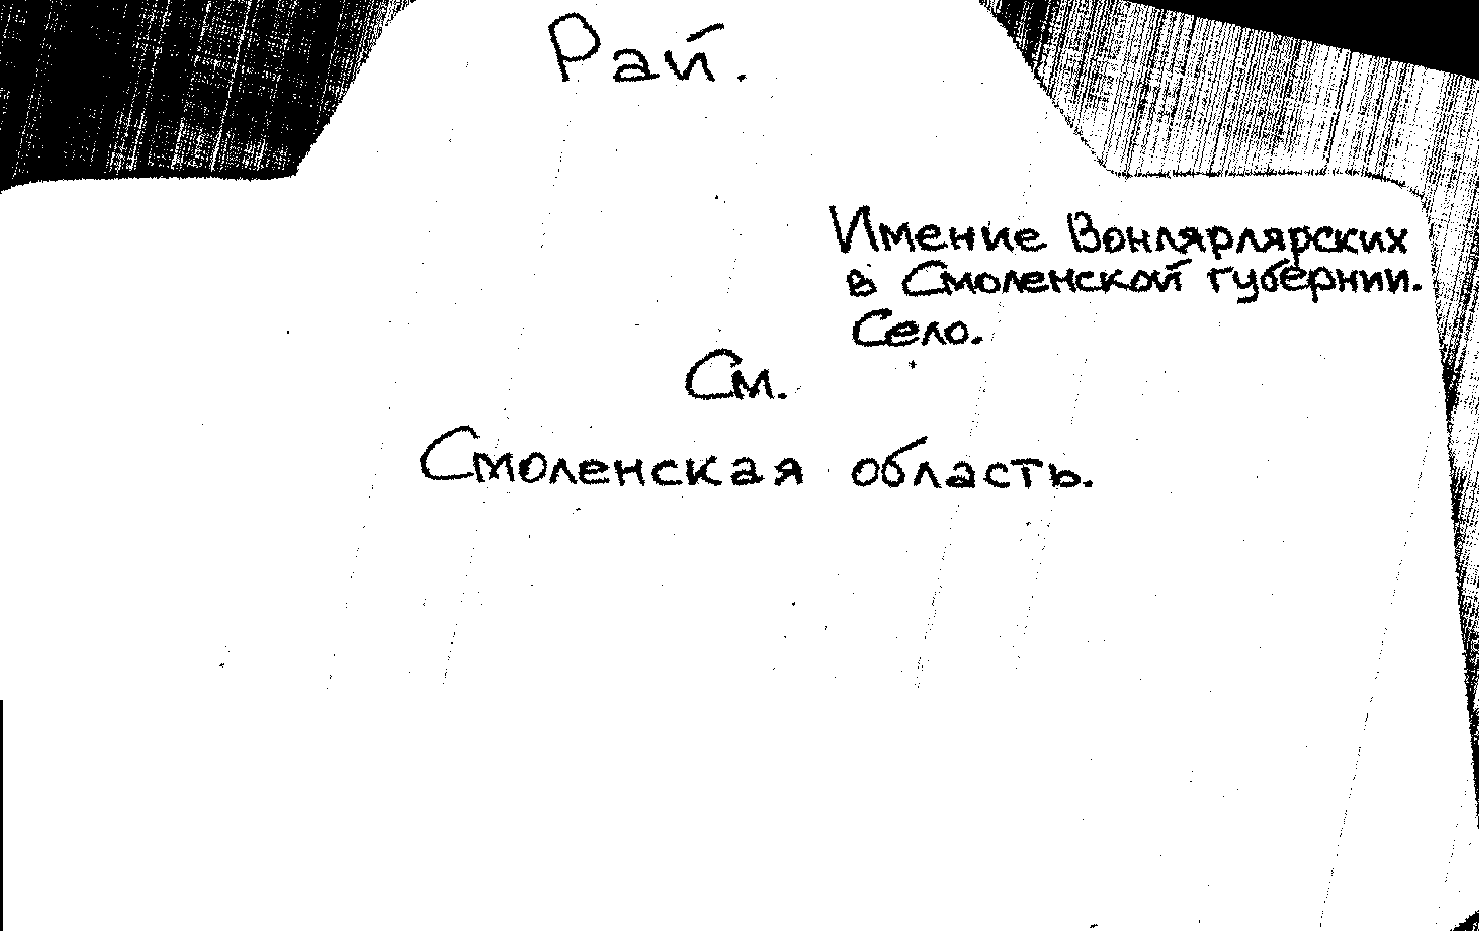 Рай.
Имение Вонлярлярских
в Смоленской губернии.
Село.
См.
Смоленская область.